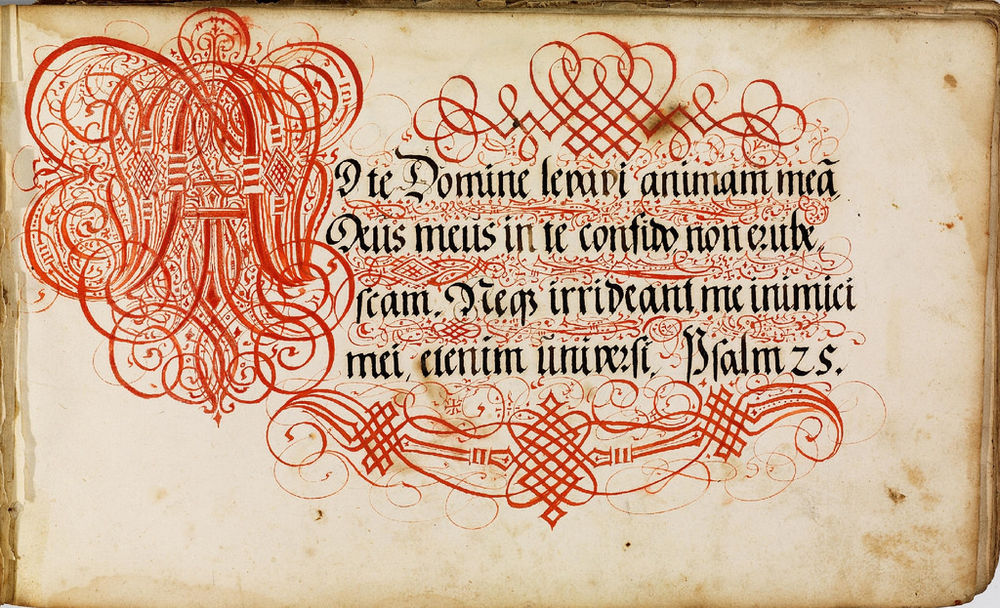 AD te Domine levavi animam meā
Deus meus in te confido non erube,
scam. Neqꝫ irrideant me inimici
mei, etenim universi, Psalm 25.